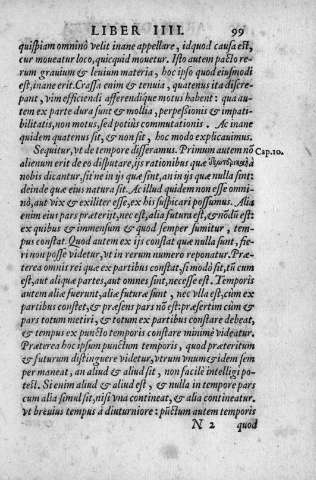 LIBER IIII. 99
quispiam omninò velit inane appellare, id quod causa est,
cur moueatur loco, quicquid mouetur. Isto autem pacto re-
rum grauium & leuium materia, hoc ipso quod eiusmodi
est, inane erit. Crassa enim & tenuia, quatenus ita discre-
pant, vim efficiendi afferendique motus habent: qua au-
tem ex parte dura sunt & mollia, perpessionis & impati-
bilitatis, non motus, sed potiùs commutationis. Ac inane
quidem quatenus sit, & non sit, hoc modo explicauimus.
Sequitur, vt de tempore disseramus. Primum autem nõ
alienum erit de eo disputare, ijs rationibus quæ
nobis dicantur, sit ne in ijs quæ sint, an in ijs quæ nulla sint:
deinde quæ eius natura sit. Ac illud quidem non esse omni-
nò, aut vix & exiliter esse, ex his suspicari possumus. Alia
enim eius pars præterijt, nec est, alia futura est, & nõdũ est:
ex quibus & immensum & quod semper sumitur, tem-
pus constat. Quod autem ex ijs constat quæ nulla sunt, fie-
ri non posse videtur, vt in rerum numero reponatur. Præ-
terea omnis rei quæ ex partibus constat, si modò sit, tũ cum
est, aut aliquæ partes, aut omnes sint, necesse est. Temporis
autem aliæ fuerunt, aliæ futuræ sunt, nec vlla est, cùm ex
partibus constet, & præsens pars nõ est: præsertim cùm &
pars totum metiri, & totum ex partibus constare debeat,
& tempus ex puncto temporis constare minimè videatur.
Præterea hoc ipsum punctum temporis, quod præteritum
& futurum distinguere videtur, vtrum vnum & idem sem
per maneat, an aliud & aliud sit, non facilè intelligi po-
test. Si enim aliud & aliud est, & nulla in tempore pars
cum alia simul sit, nisi vna contineat, & alia contineatur.
vt breuius tempus à diuturniore: pũctum autem temporis
N 2 quod
Cap. 10.